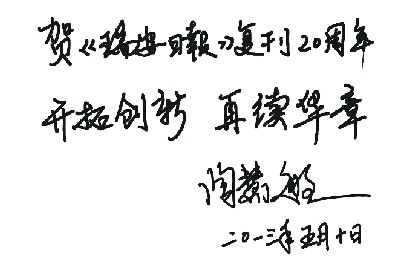 贺《瑞安日报》复刊20周年
开拓创新 再续华章
二〇一三年五月十日